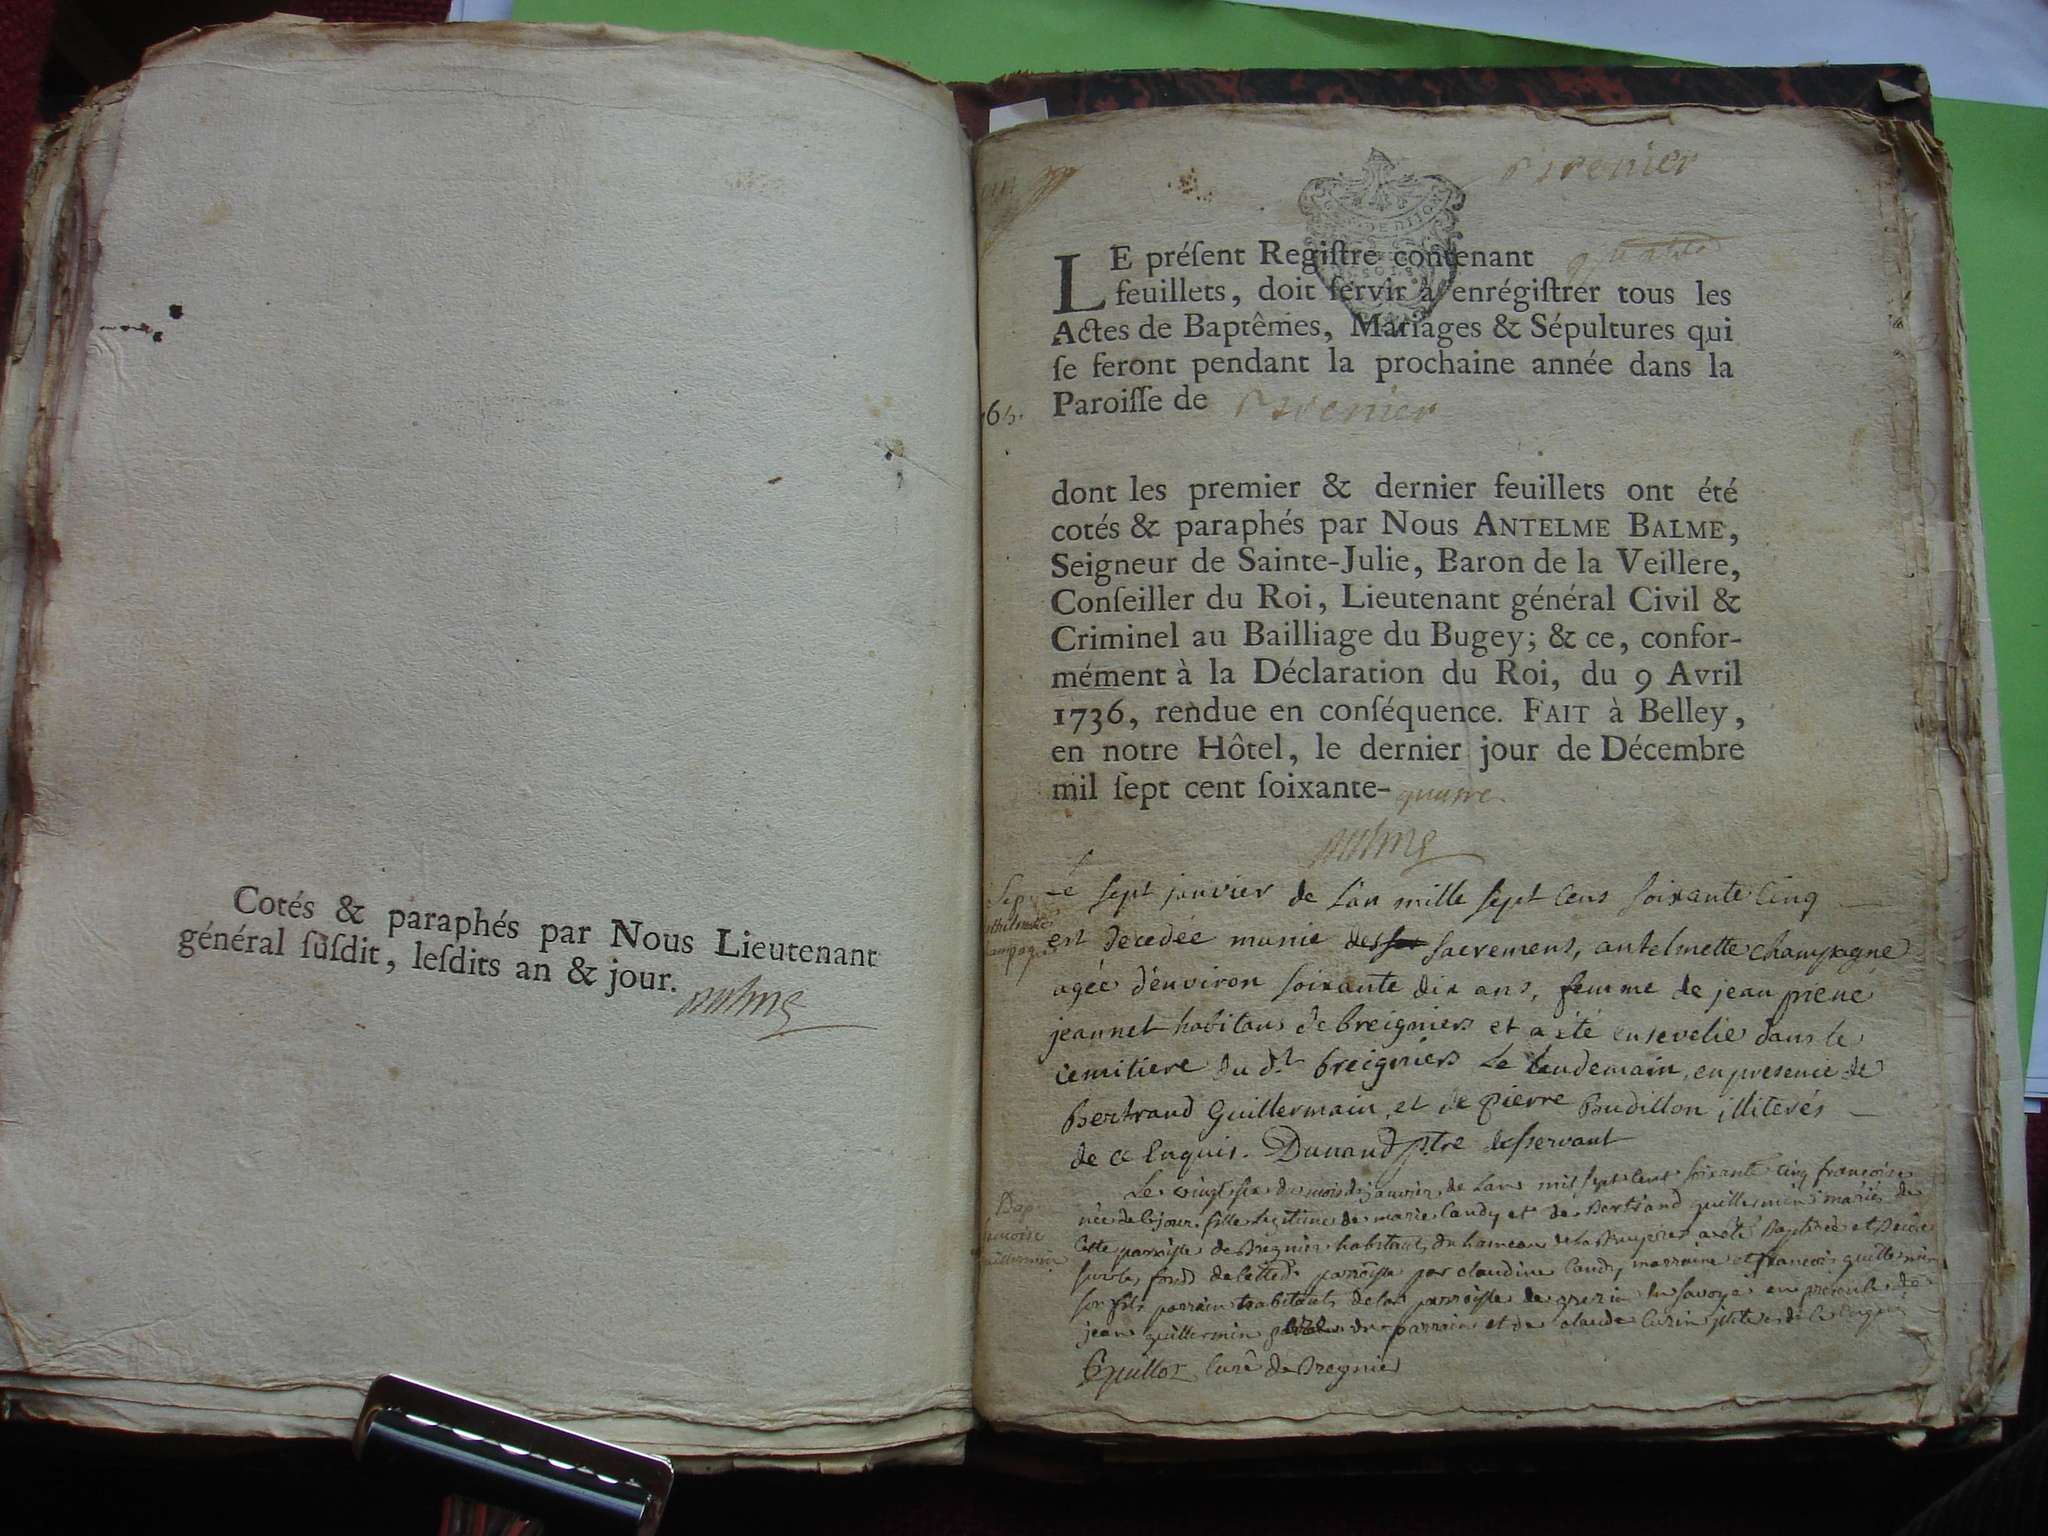 Cotés & paraphés par Nous Lieutenant
général ſuſdit, leſdits an & jour.
Balme
Bregnier
LE préſent Regiſtre contenant quatre
feuillets, doit ſervir à enrégiſtrer tous les
Actes de Baptêmes, Mariages & Sépultures qui
ſe feront pendant la prochaine année dans la
Paroiſſe de Bregnier
dont les premier & dernier feuillets ont été
cotés & paraphés par Nous ANTELME BALME,
Seigneur de Sainte-Julie, Baron de la Veillere,
Conſeiller du Roi, Lieutenant général Civil &
Criminel au Bailliage du Bugey; & ce, confor-
mément à la Déclaration du Roi, du 9 Avril
1736, rendue en conſéquence. FAIT à Belley,
en notre Hôtel, le dernier jour de Décembre
mil ſept cent ſoixante-quatre
Balme
Sep.
Le sept janvier de l'an mille sept cens soixante cinq
est decedée munie des sacremens, antelmette champagne
agée d'environ soixante dix ans, femme de jean pierre
jeannet habitans de breigniers et a été ensevelie dans le
cemitiere du dt breigniers le lendemain, en presence de
Bertrand Guillermain, et de pierre Budillon illiterés
de ce enquis. Dunand ptre desservant
Bap
francoise
guillermin
Le vingt six du mois de janvier de lan mil sept cent soixante cinq francoise
née de ce jour fille legitime de marie candy et de Bertrand guillermin mariés de
cette parroisse de Bregnier habitants du hameau de la Bruyere a été Baptisée
sur les fonds de cette de parroisse par claudine candy marraine et francois guillermin
son fils parrain habitants de la parroisse de grezin en savoye en presence de
jean guillermin du parrain et de claude
Guillot curé de Bregnier